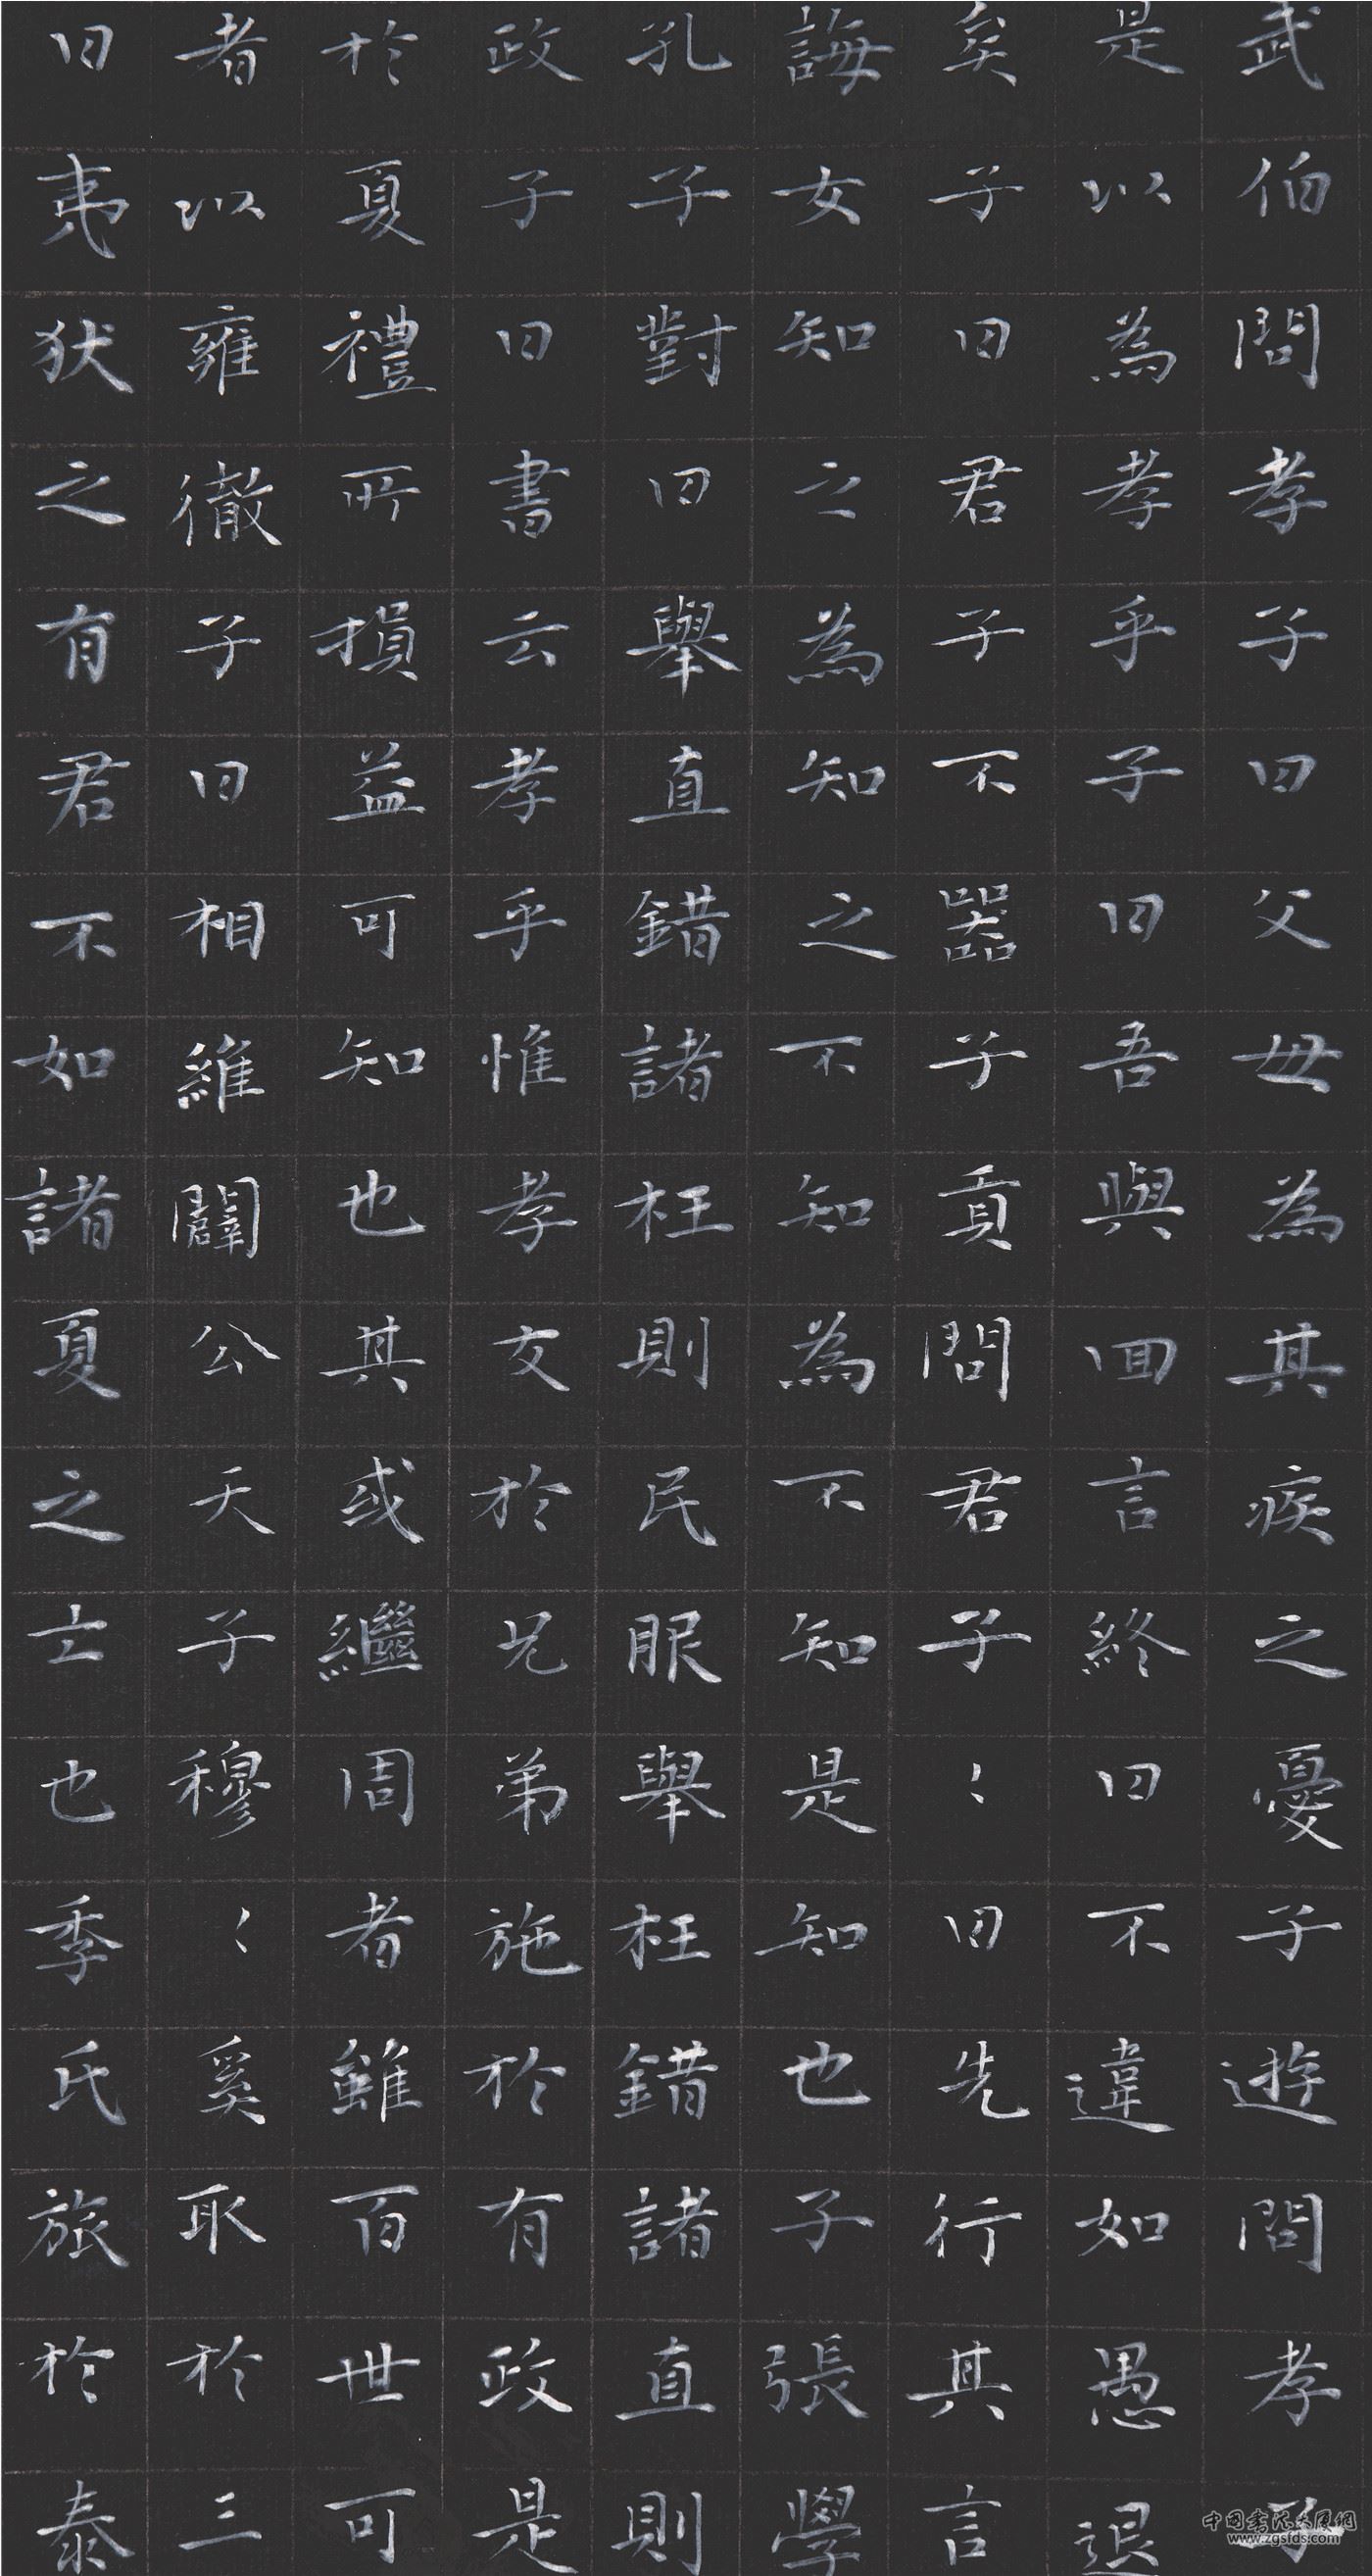 武伯問孝子曰父母為其疾之憂子遊問孝子
是以為孝乎子曰吾與回言終曰不違如愚退
矣子曰君子不器子貢問君子〻曰先行其言
誨女知之為知之不知為不知是知也子張學
孔子對曰舉直錯諸枉則民服舉枉錯諸直則
政子曰書云孝乎惟孝友於兄弟施於有政是
於夏禮所損益可知也其或繼周者雖百世可
者以雍徹子曰相維闢公天子穆〻奚取於三
曰夷狄之有君不如諸夏之士也季氏旅於泰
中國書法大展網
www.zgsfds.com